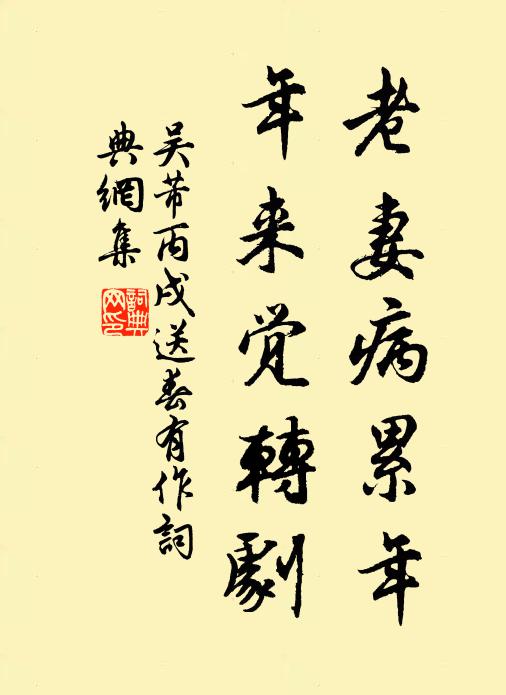 老妻病累年
年来觉轉劇
吴芾丙戌送春有作詞
典網集
詞典网印